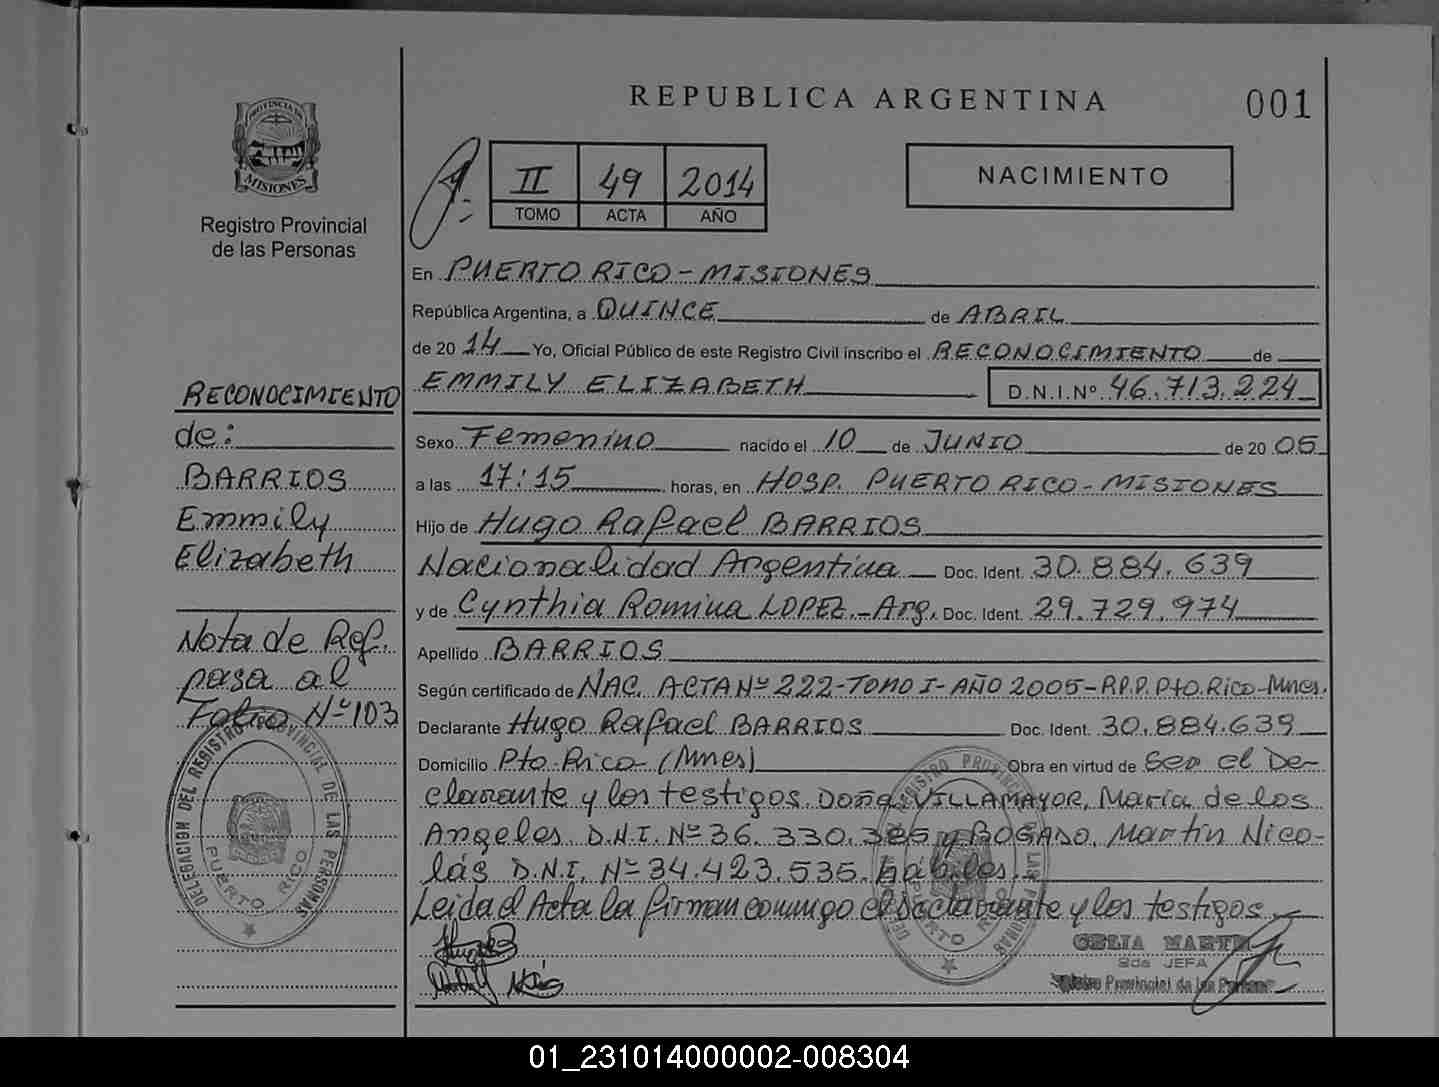 PROVINCIA DE
MISIONES
Registro Provincial
de las Personas
RECONOCIMIENTO
de:
BARRIOS
Emmily
Elizabeth
Nota de Ref.
pasa al
Folio Nº 103
DELEGACION DEL REGISTRO PROVINCIAL DE LAS PERSONAS
PUERTO RICO
REPUBLICA ARGENTINA
001
II 49 2014
TOMO ACTA AÑO
NACIMIENTO
En PUERTO RICO - MISIONES
República Argentina, a QUINCE de ABRIL
de 2014 Yo, Oficial Público de este Registro Civil inscribo el RECONOCIMIENTO de
EMMILY ELIZABETH D.N.I.Nº 46.713.224
Sexo Femenino nacido el 10 de JUNIO de 2005
a las 17:15 horas, en HOSP. PUERTO RICO - MISIONES
Hijo de Hugo Rafael BARRIOS
Nacionalidad Argentina Doc. Ident. 30.884.639
y de Cynthia Romina LOPEZ.-Arg. Doc. Ident. 29.729.974
Apellido BARRIOS
Según certificado de NAC. ACTA Nº 222-TOMO I-AÑO 2005-R.P.P. Pto. Rico-Mnes.
Declarante Hugo Rafael BARRIOS Doc. Ident. 30.884.639
Domicilio Pto. Rico - (Mnes) Obra en virtud de Ser el De-
clarante y los testigos Doña VILLAMAYOR, María de los
Angeles D.N.I. Nº 36.330.385 y BOGADO, Martín Nico-
lás D.N.I. Nº 34.423.535. hábiles.
Leida el Acta la firman conmigo el declarante y los testigos
DELEGACION DEL REGISTRO PROVINCIAL DE LAS PERSONAS
PUERTO RICO
CELIA MARTIN
2da JEFA
Registro Provincial de las Personas
01_231014000002-008304